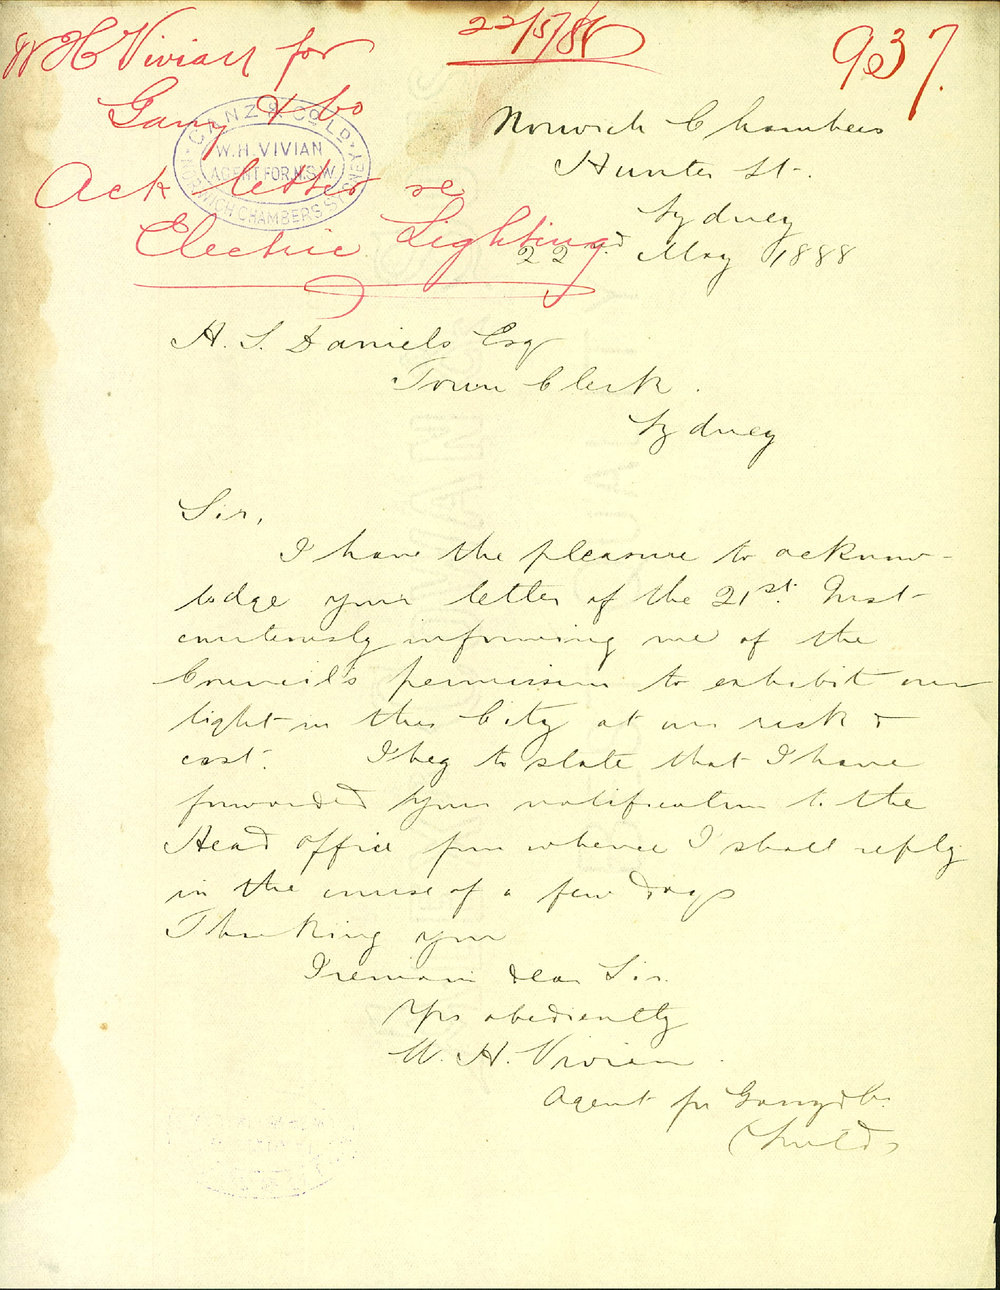 22/5/88
937.
W H Vivian for
Ganz & Co
Ack letter re
Electric Lighting
GANZ & Co. LD.
W. H. VIVIAN
AGENT FOR N.S.W.
NORWICH CHAMBERS SYDNEY
Norwich Chambers
Hunter St.
Sydney
22nd May 1888
H. S. Daniels Esq
Town Clerk.
Sydney
Sir,
I have the pleasure to acknow-
ledge your letter of the 21st. Inst
courteously informing me of the
Council's permission to exhibit our
light in this City at our risk &
cost. I beg to state that I have
forwarded your notification to the
Head office from whence I shall reply
in the course of a few days
Thanking you
I remain dear Sir.
Yrs obediently
W. H. Vivian.
Agent for Ganz & Co.
Limtd